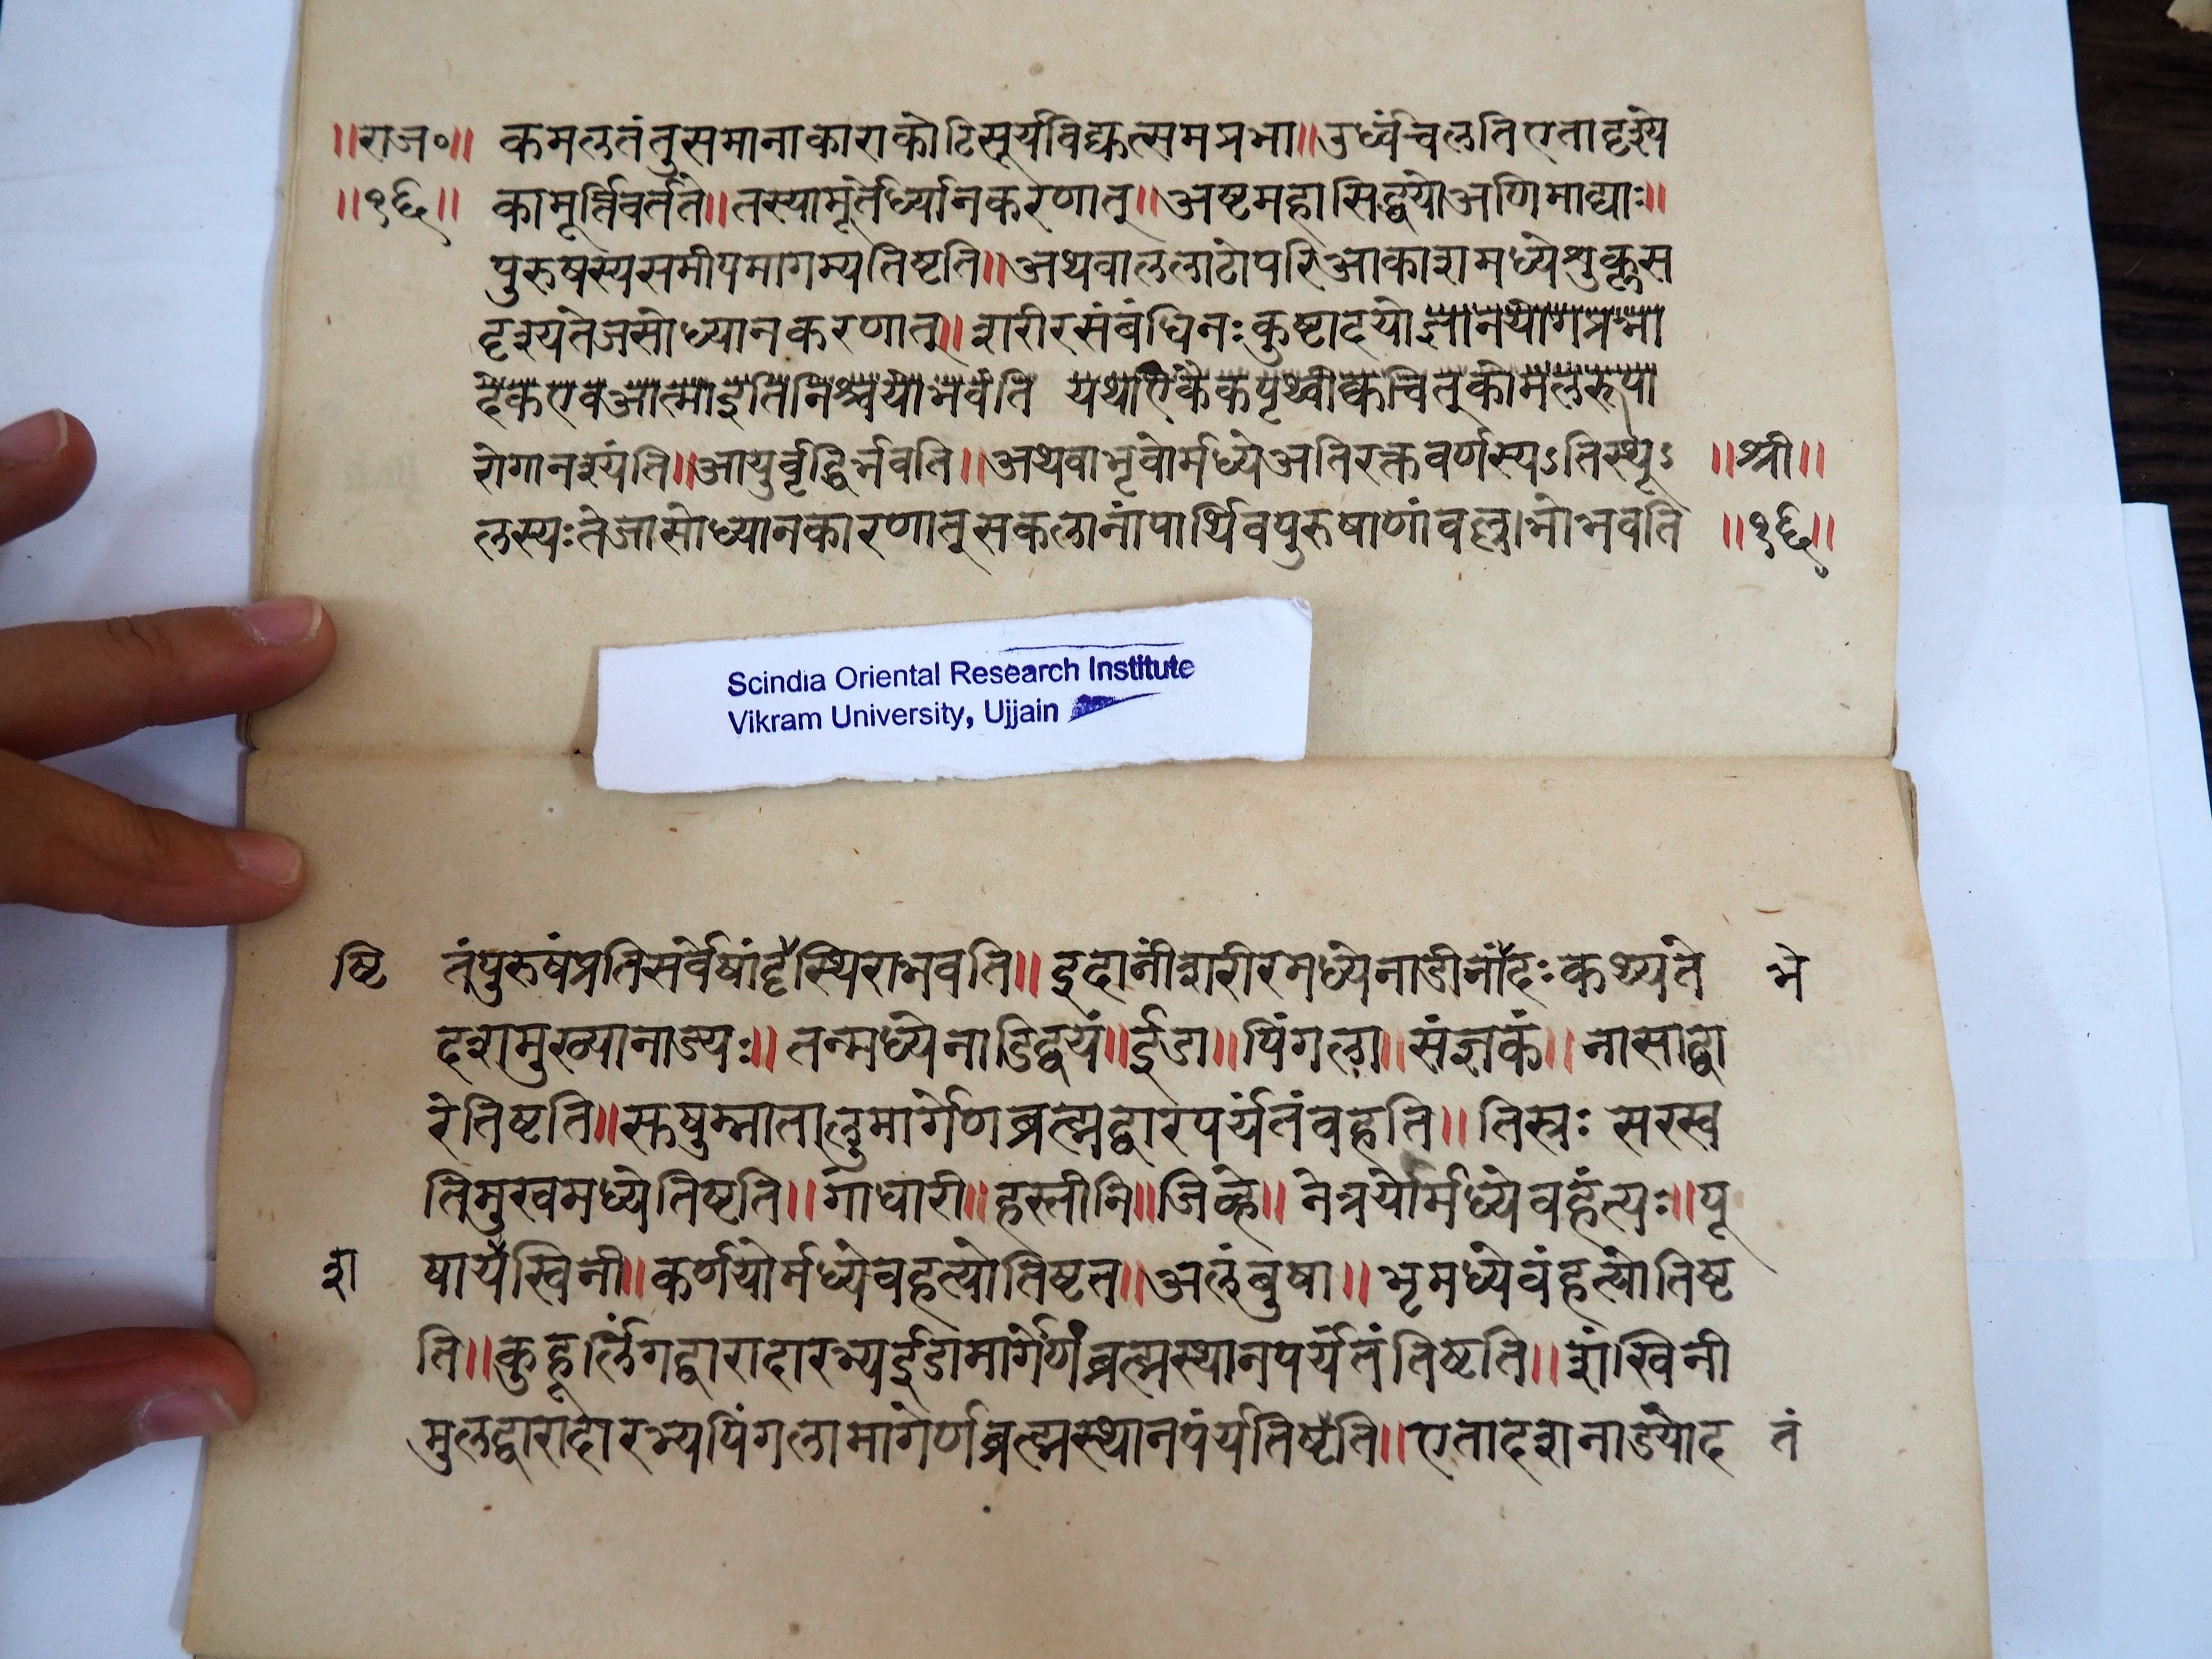 ॥राज०॥ कमलतंतुसमानाकाराकोटिसूर्यविद्युत्समप्रभा॥उर्ध्वंचलतिएतादृश्ये
॥१६॥ कामूर्त्तिवर्तते॥तस्यामूर्तेर्ध्यानकरणात्॥अष्टमहासिद्धयोअणिमाद्याः॥
पुरुषस्यसमीपमागम्यतिष्टति॥अथवाललाटोपरिआकाशमध्येशुक्लस
दृश्यतेजसोध्यानकरणात्॥शरीरसंबंधिनःकुष्टादयोज्ञानयोगप्रभा
देकएवआत्माइतिनिश्चयोभवंति यथाएकैकपृथ्वीक्वचित्कोमलरूपा
रोगानश्यंति॥आयुर्वृद्धिर्भवति॥अथवाभृवोर्मध्येअतिरक्तवर्णस्यऽतिस्थूऽ ॥श्री॥
लस्यःतेजासोध्यानकारणात्सकलानांपार्थिवपुरुषाणांवल्लभोभवति ॥१६॥
Scindia Oriental Research Institute
Vikram University, Ujjain
ष्टि तंपुरुषंप्रतिसर्वेषांदृस्थिराभवति॥इदानींशरीरमध्येनाडीनांदःकथ्यते भे
दशमुख्यानाड्यः॥तन्मध्येनाडिद्वयं॥ईडा॥पिंगला॥संज्ञकं॥नासाद्वा
रेतिष्टति॥सुषुम्नातालुमार्गेणब्रह्मद्वारपर्यंतंवहति॥तिस्त्रः सरस्व
तिमुखमध्येतिष्टति॥गांधारी॥हस्तीनि॥जिव्हे॥नेत्रयोर्मध्येवहंत्यः॥पू
श षायस्विनी॥कर्णयोर्मध्येवहत्योतिष्टत॥अलंबुषा॥भृमध्येवंहत्योतिष्ट
ति॥कुहूर्लिंगद्वारादारभ्यईडामार्गेणंब्रह्मस्थानपर्यंतंतिष्टति॥शंखिनी
मुलद्वारादारभ्यपिंगलामार्गेणब्रह्मस्थानपंर्यतिष्टति॥एतादशनाड्योद तं